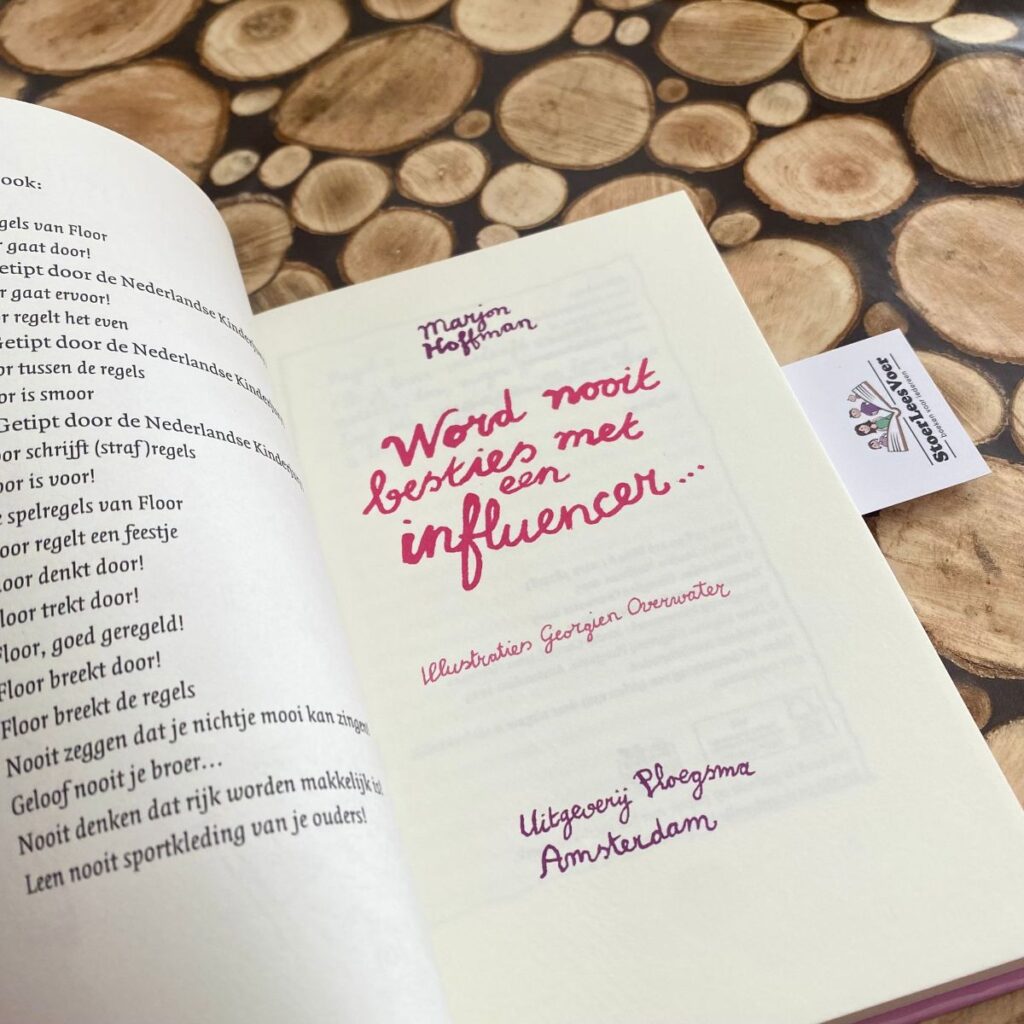 ook:
van Floor
gaat door!
Getipt door de Nederlandse
gaat ervoor!
regelt het even
Getipt door de Nederlandse
tussen de regels
is smoor
Getipt door de Nederlandse
schrijft (straf)regels
is voor!
spelregels van Floor
regelt een feestje
denkt door!
Floor trekt door!
Floor, goed geregeld!
Floor breekt door!
Floor breekt de regels
Nooit zeggen dat je nichtje mooi kan zingen!
Geloof nooit je broer...
Nooit denken dat rijk worden makkelijk is!
Leen nooit sportkleding van je ouders!
Marjon
Hoffman
Word nooit
besties met
een
influencer...
Illustraties Georgien Overwater
Uitgeverij Ploegsma
Amsterdam
StoerLeesVoer
boeken voor iedereen